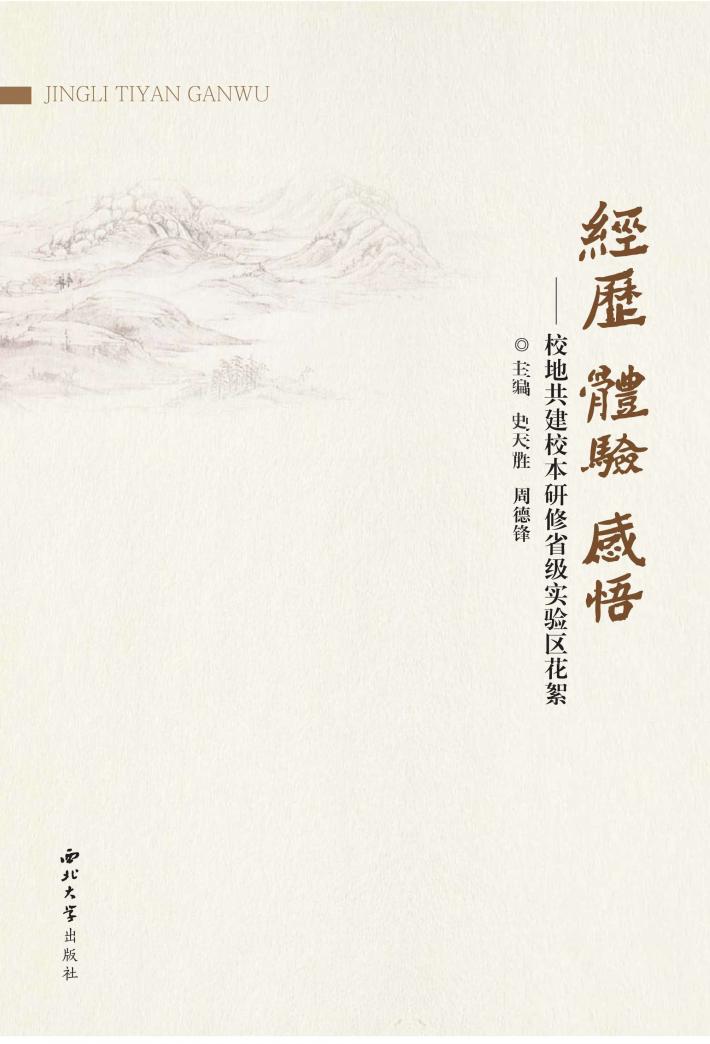 JINGLI TIYAN GANWU
經歷 體驗 感悟
——校地共建校本研修省级实验区花絮
◎主编 史天胜 周德锋
西北大学出版社